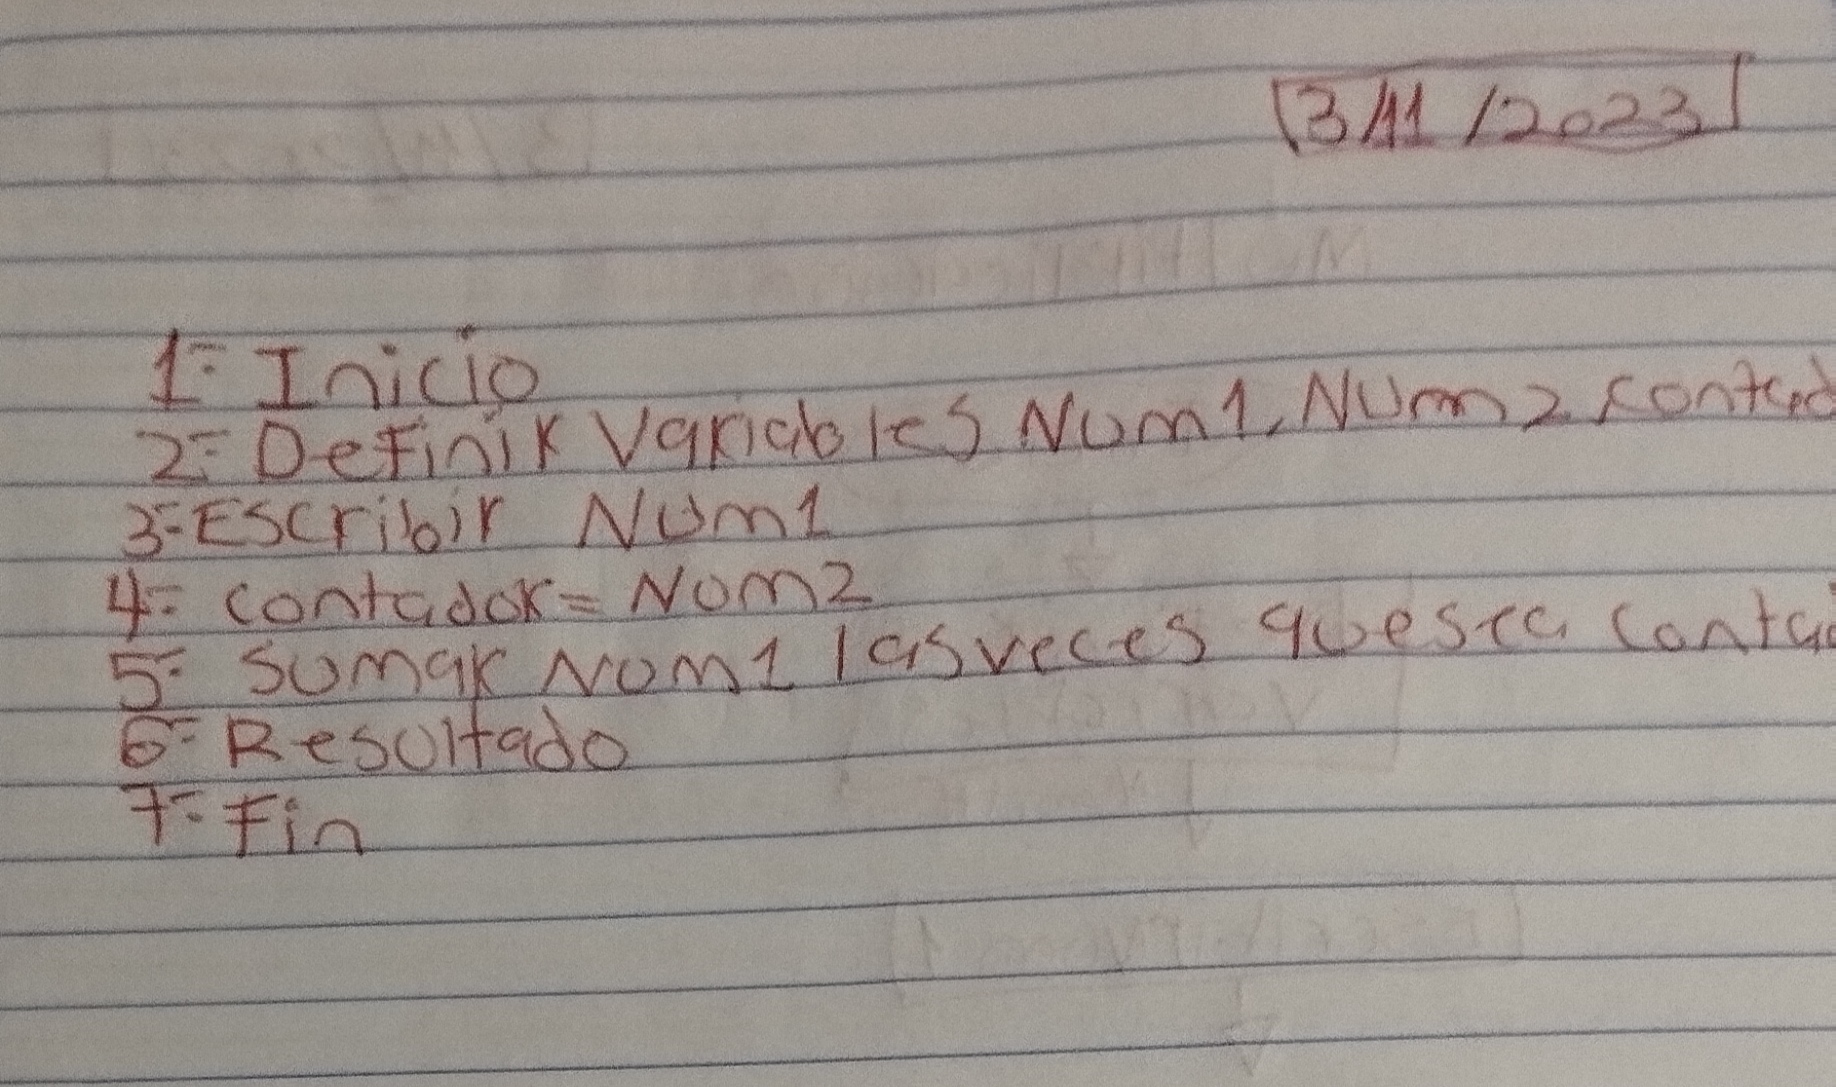 3/11/2023
1- Inicio
2- Definir Variables Num1, Num2 contad
3- Escribir Num1
4- contador = Num2
5- Sumar Num1 las veces que sea conta
6- Resultado
7- Fin